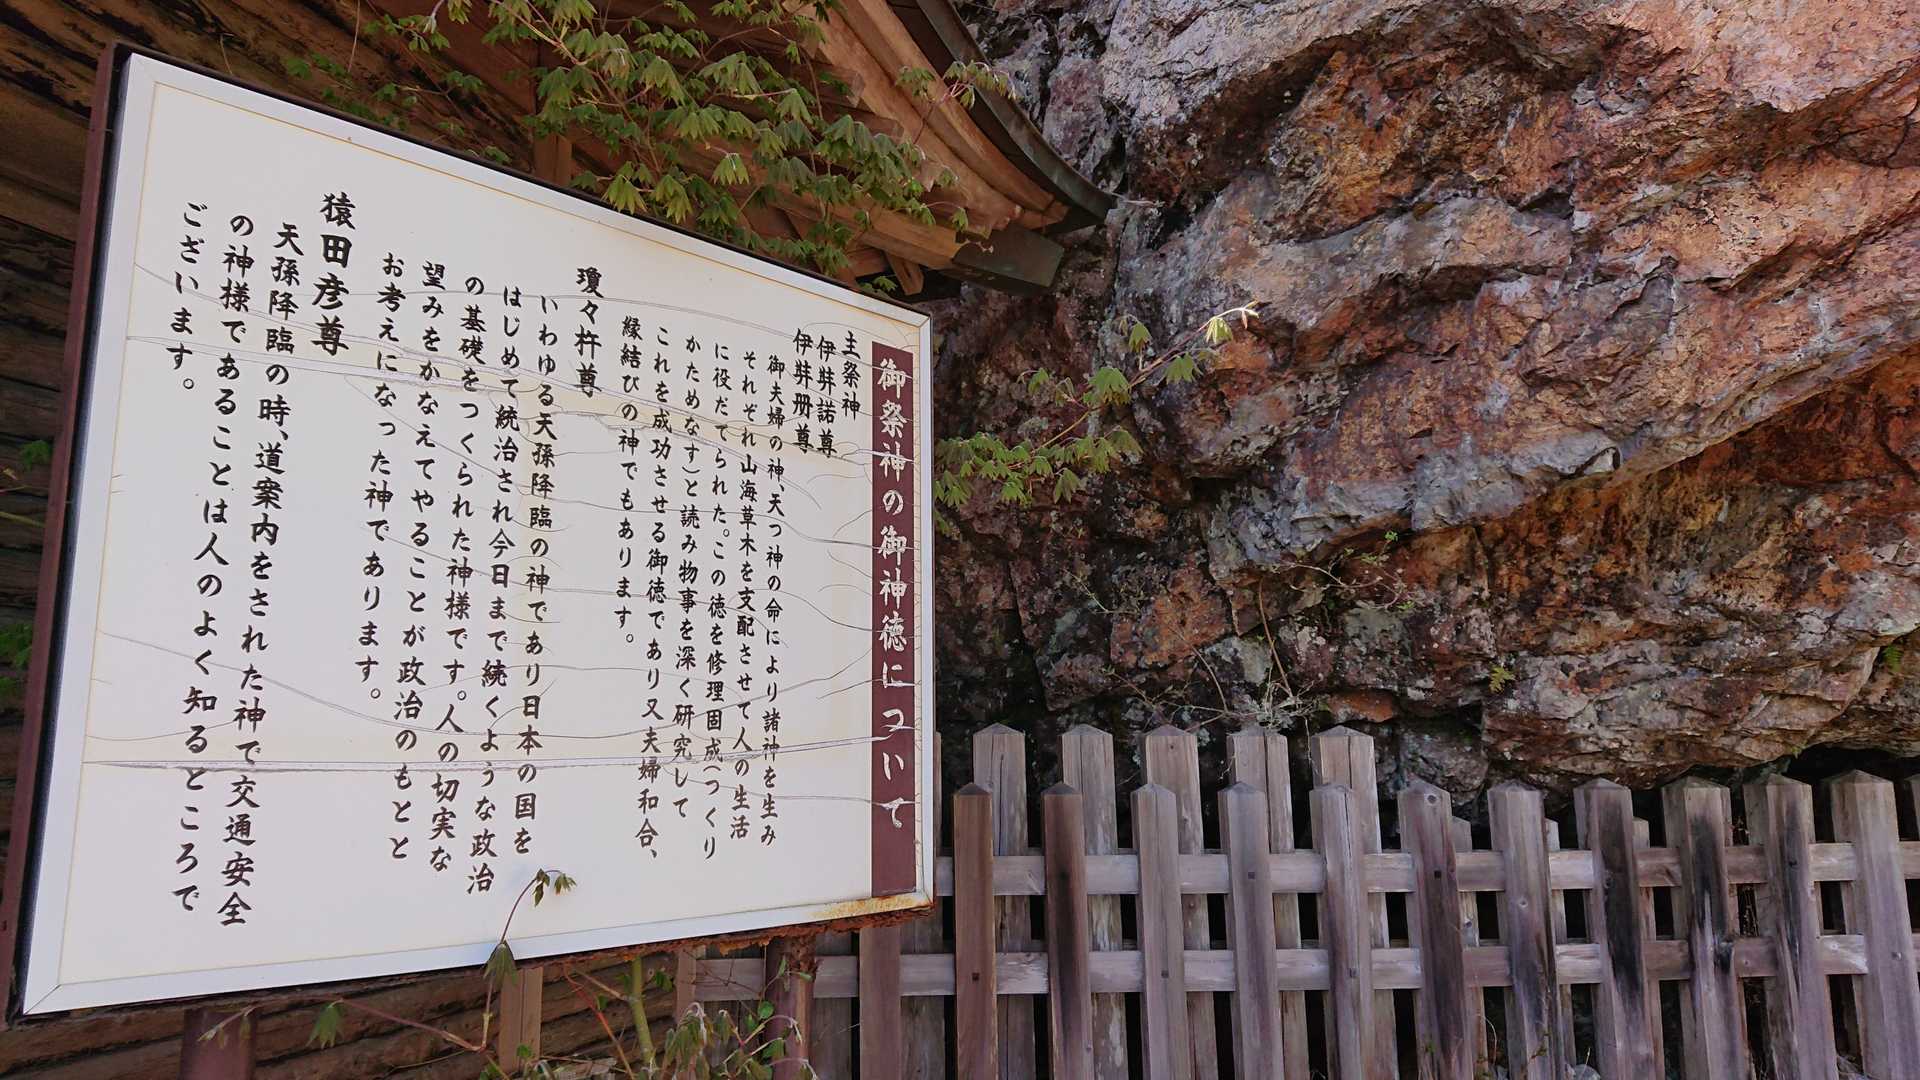 御祭神の御神徳について
主祭神
伊弉諾尊
伊弉册尊
御夫婦の神、天つ神の命により諸神を生み
それぞれ山海草木を支配させて人の生活
に役だてられた。この徳を修理固成（つくり
かためなす）と読み物事を深く研究して
これを成功させる御徳であり又夫婦和合、
縁結びの神でもあります。
瓊々杵尊
いわゆる天孫降臨の神であり日本の国を
はじめて統治され今日まで続くような政治
の基礎をつくられた神様です。人の切実な
望みをかなえてやることが政治のもとと
お考えになった神であります。
猿田彦尊
天孫降臨の時、道案内をされた神で交通安全
の神様であることは人のよく知るところで
ございます。